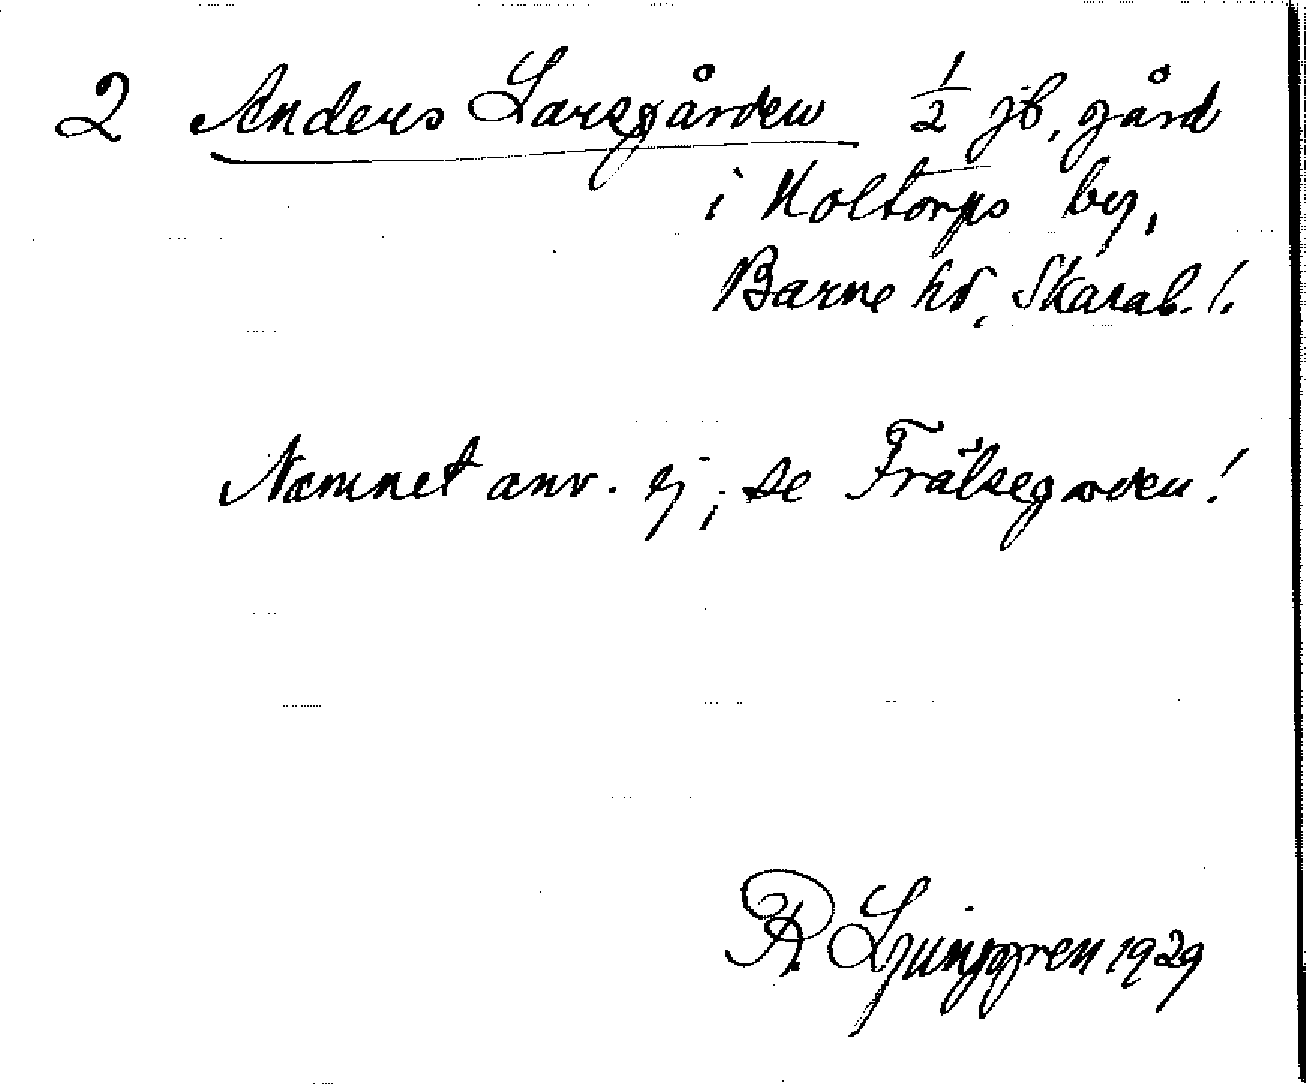 2 Anders Larsgården 1/2 jb. gård
i Koltorps by,
Barne hd, Skarab. l.
Namnet anv. ej; se Frälsegården!
R Ljunggren 1929